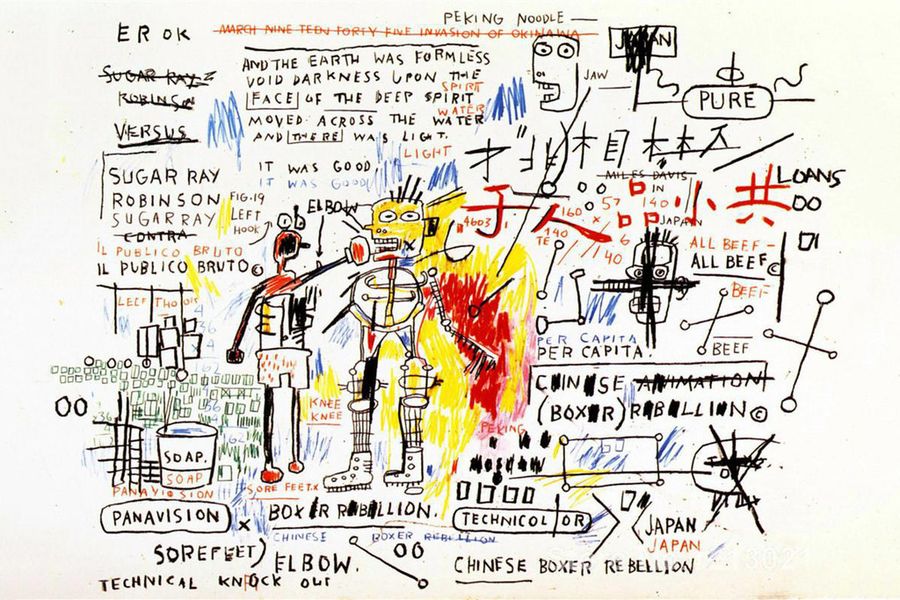 PEKING NOODLE —
EROK
MARCH NINE TEEN FORTY FIVE INVASION OF OKINAWA
JAPAN
AND THE EARTH WAS FORMLESS
VOID DARKNESS UPON THE
SPIRIT
FACE OF THE DEEP SPIRIT
WATER
MOVED ACROSS THE WATER
AND THERE WAS LIGHT.
LIGHT
IT WAS GOOD
IT WAS GOOD
JAW
PURE
SUGAR RAY
ROBINSON
VERSUS
SUGAR RAY
ROBINSON
SUGAR RAY
CONTRA
FIG.19
LEFT
HOOK
ELBOW
IL PUBLICO BRUTO
IL PUBLICO BRUTO©
MILES DAVIS
IN
JAPAN
LOANS
4603
160
57
140
x
6
140
40
人品小共
ALL BEEF –
ALL BEEF©
BEEF
BEEF
PER CAPITA
PER CAPITA.
CHINESE ANIMATION
(BOXER) REBELLION©
PEKING
MOSCOW
KNEE
KNEE
SOAP.
SOAP
PANAVISION
PANAVISION x
SORE FEET.x
BOXER REBELLION.
CHINESE BOXER REBELLION
TECHNICOLOR
JAPAN
JAPAN
SOREFEET)
ELBOW.
CHINESE BOXER REBELLION
TECHNICAL KNOCK OUT